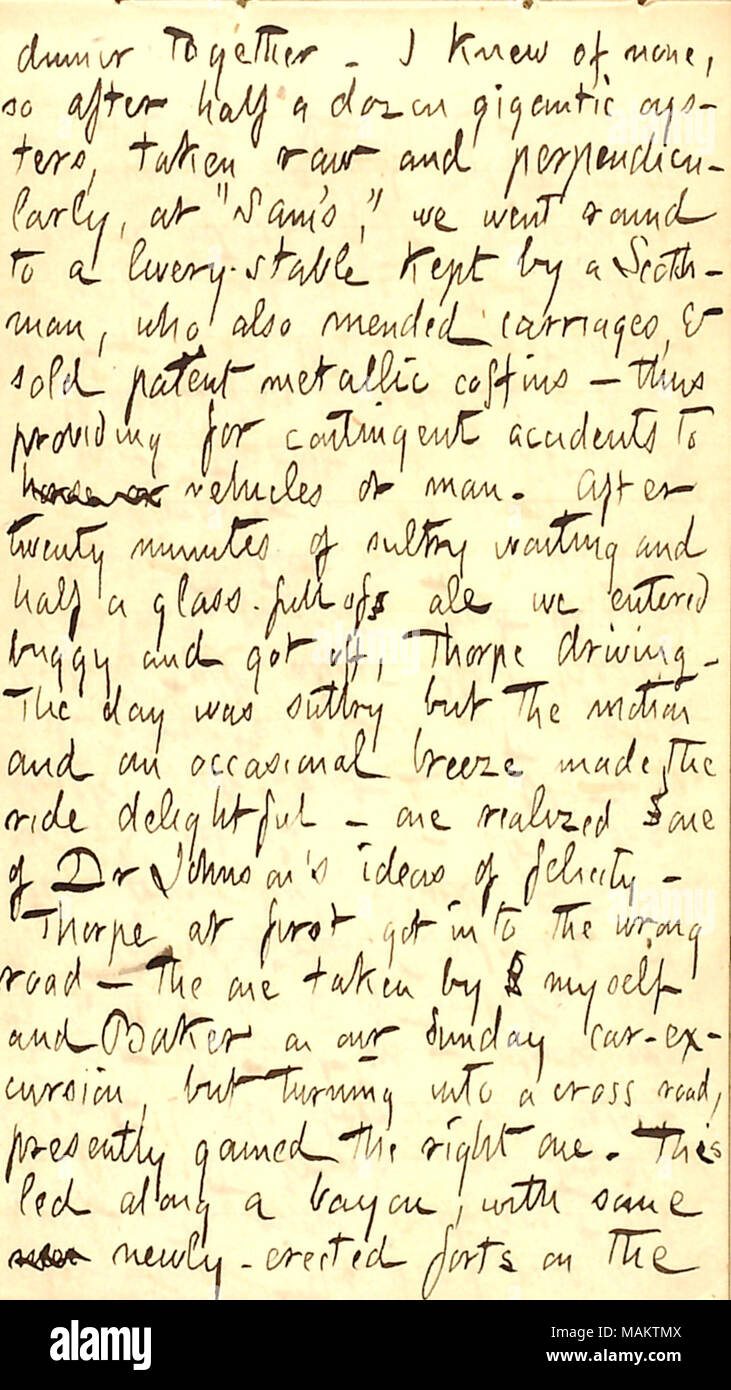 dinner together - I knew of none,
so after half a dozen gigantic oys-
ters, taken raw and perpendicu-
larly, at "Sam's," we went round
to a livery-stable kept by a Scotch-
man, who also mended carriages, &
sold patent metallic coffins - thus
providing for contingent accidents to
horse or vehicles or man. After
twenty minutes of sultry waiting and
half a glass-full of ale we entered
buggy and got off, Thorpe driving.
The day was sultry but the motion
and an occasional breeze made the
ride delightful - one realized one
of Dr Johnson's ideas of felicity -
Thorpe at first got into the wrong
road - the one taken by myself
and Baker on our Sunday car-ex-
cursion, but turning into a cross road,
presently gained the right one. This
led along a bayou, with some
newly-erected forts on the
alamy
Image ID: MAKTMX
www.alamy.com